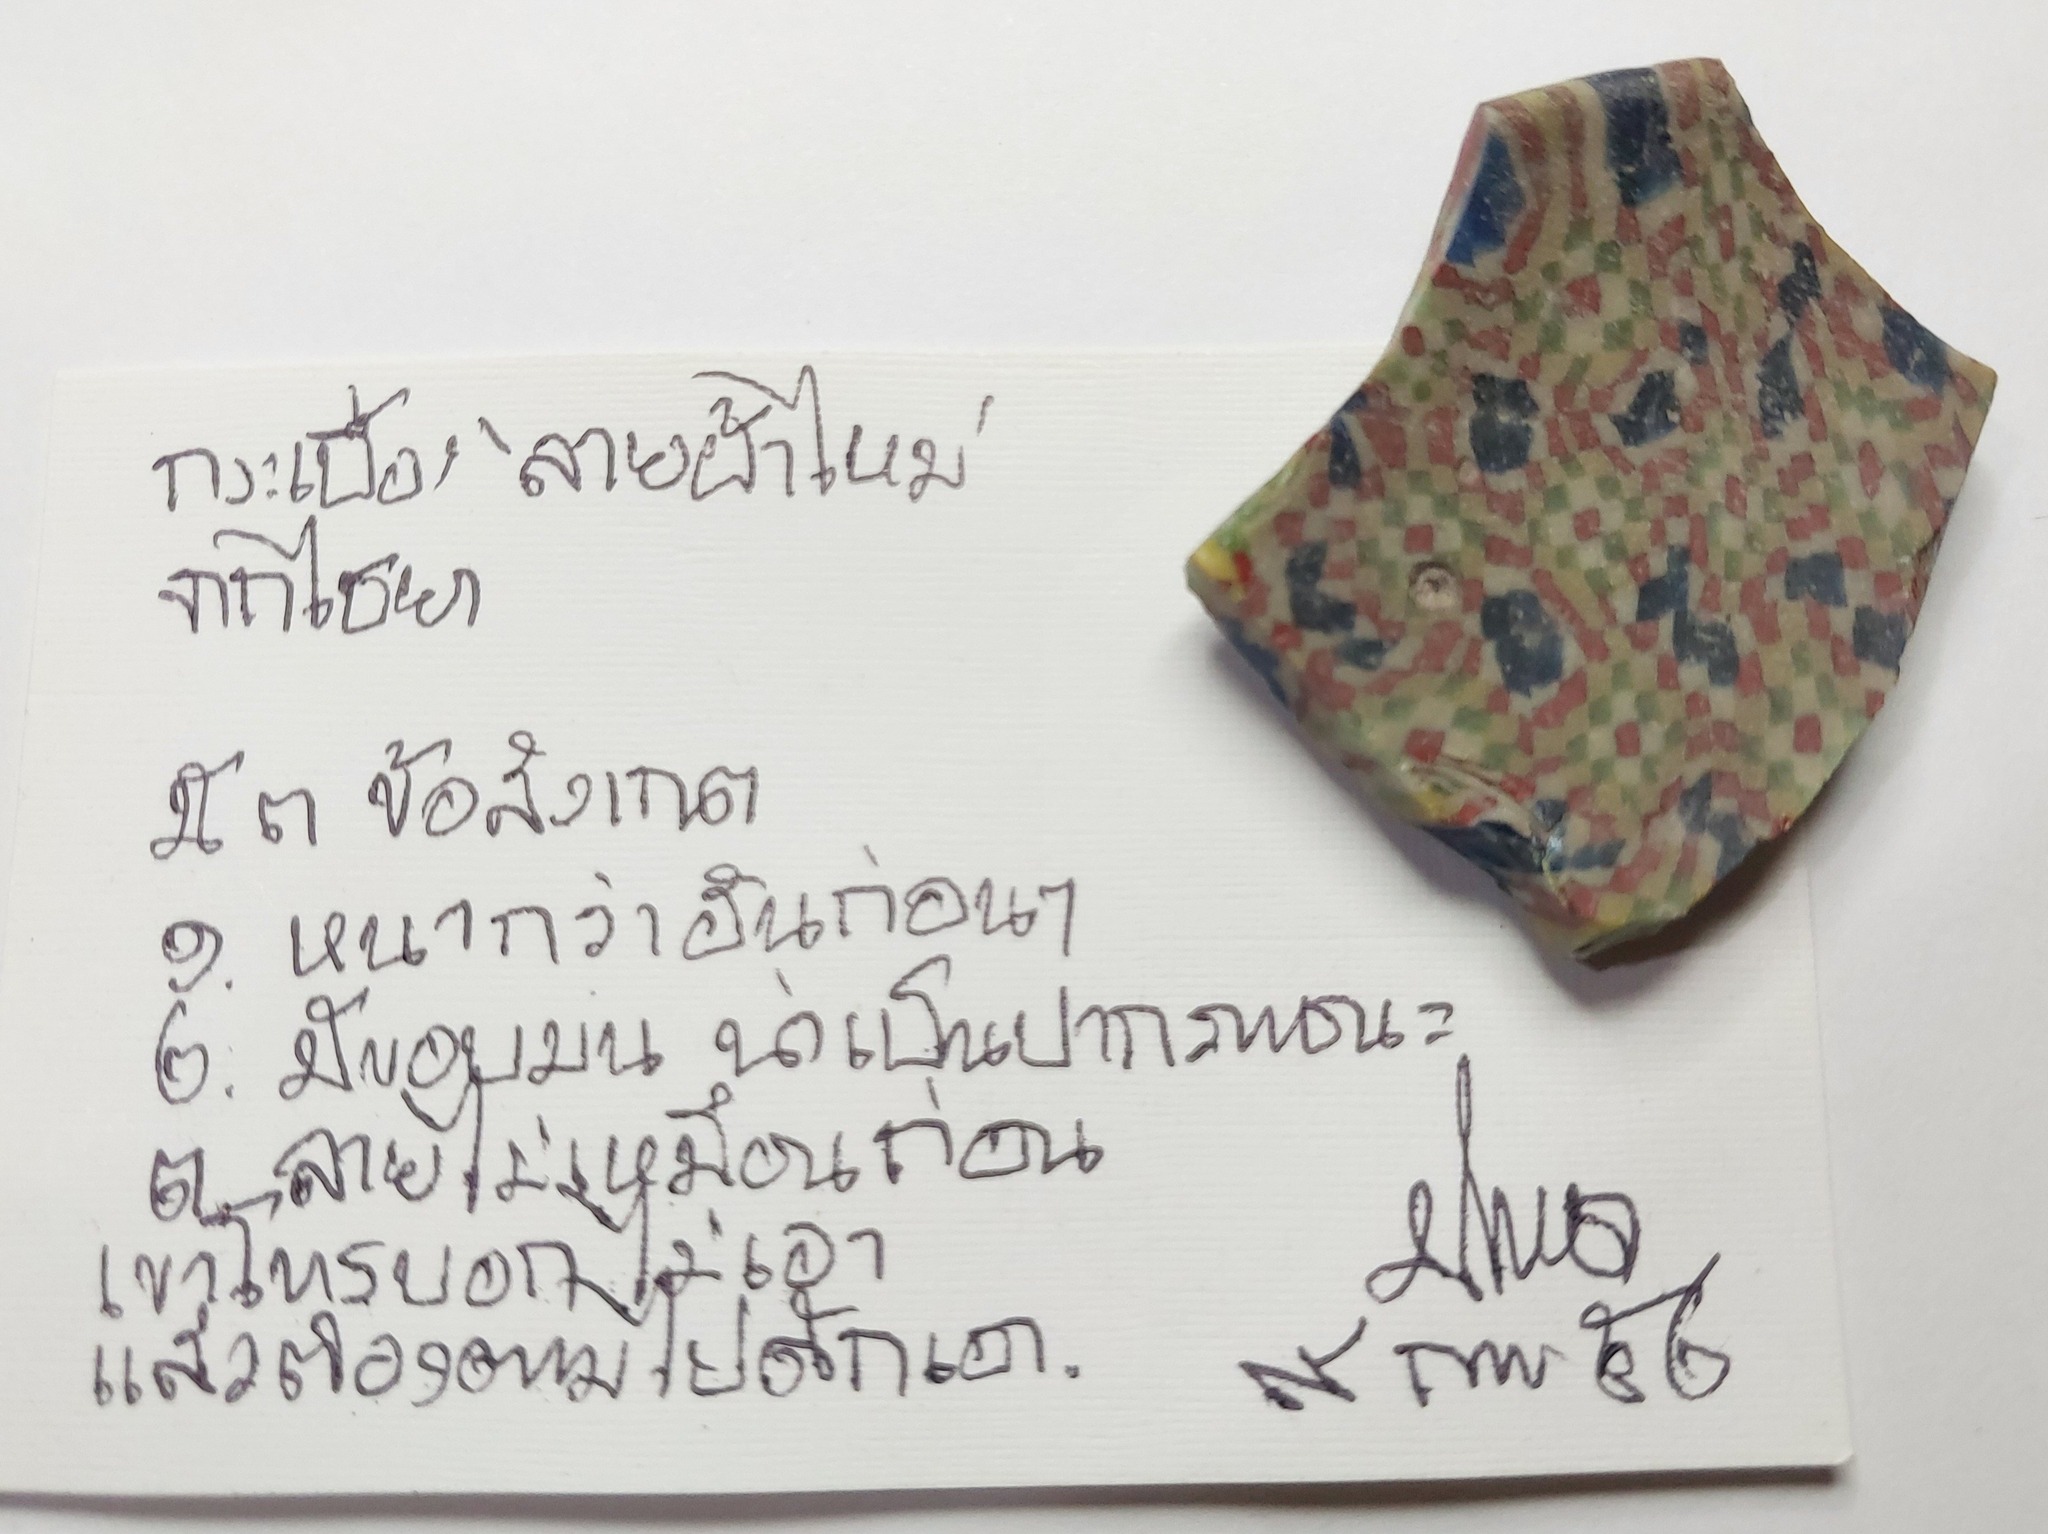 กระเบื้อง ลายผ้าไหม
จากไชยา
มี ๓ ข้อสังเกต
๑. หนากว่าอันก่อนๆ
๒. มีขอบมน น่าเป็นปากภาชนะ
๓. ลายไม่เหมือนก่อน
เขาโทรบอก ไม่เอา
แล้วต้องตามไปดักเอา.
๙ กพ ๖๒